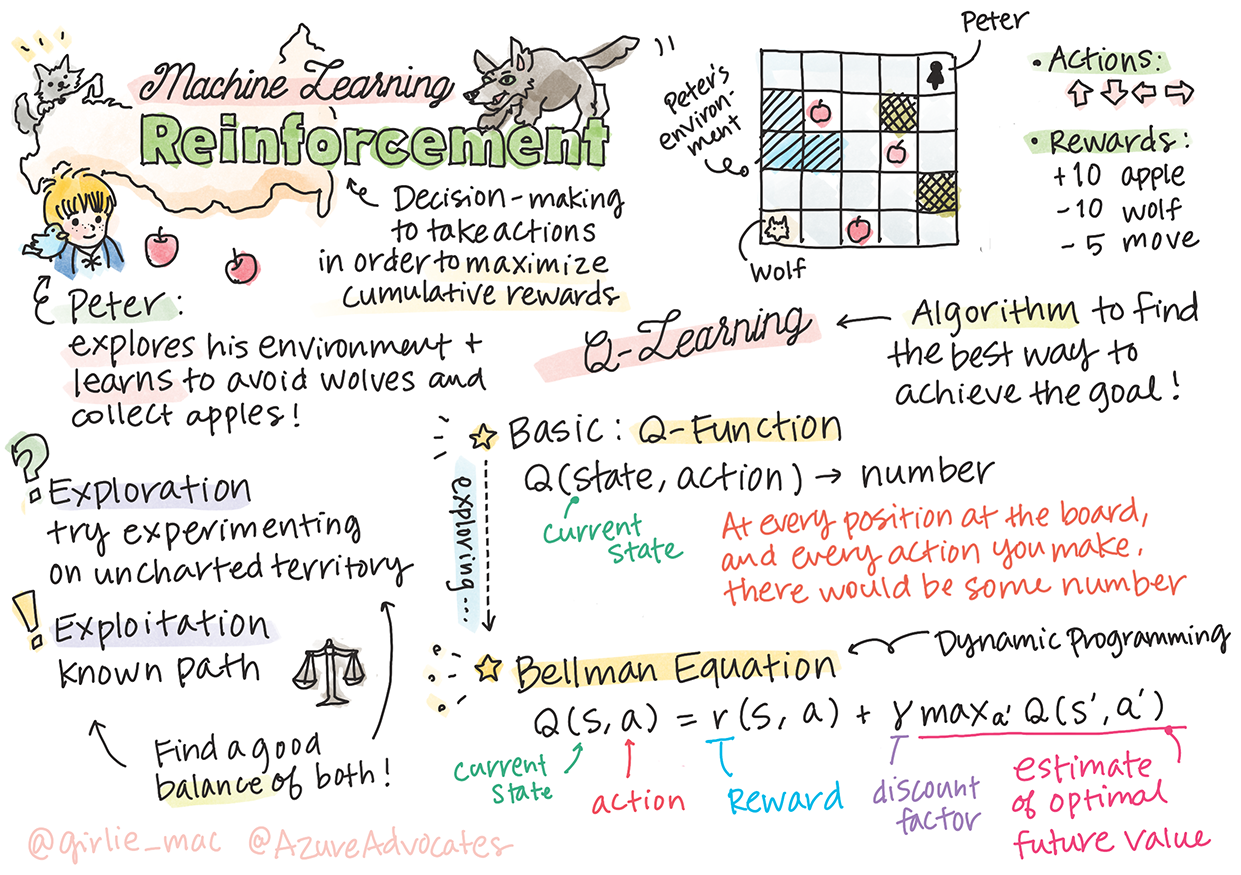 Machine Learning
Reinforcement
Decision-making
to take actions
in order to maximize
cumulative rewards
Peter:
explores his environment +
learns to avoid wolves and
collect apples!
Peter
Peter's
environ-
ment
Wolf
• Actions:
• Rewards:
+10 apple
-10 wolf
- 5 move
Q-Learning
Algorithm to find
the best way to
achieve the goal!
? Exploration
try experimenting
on uncharted territory
! Exploitation
known path
Find a good
balance of both!
Basic: Q-Function
Q(state, action) → number
current
state
At every position at the board,
and every action you make,
there would be some number
exploring...
Bellman Equation
Dynamic Programming
Q(s, a) = r(s, a) + γ maxa' Q(s', a')
current
state
action
Reward
discount
factor
estimate
of optimal
future value
@girlie_mac @AzureAdvocates